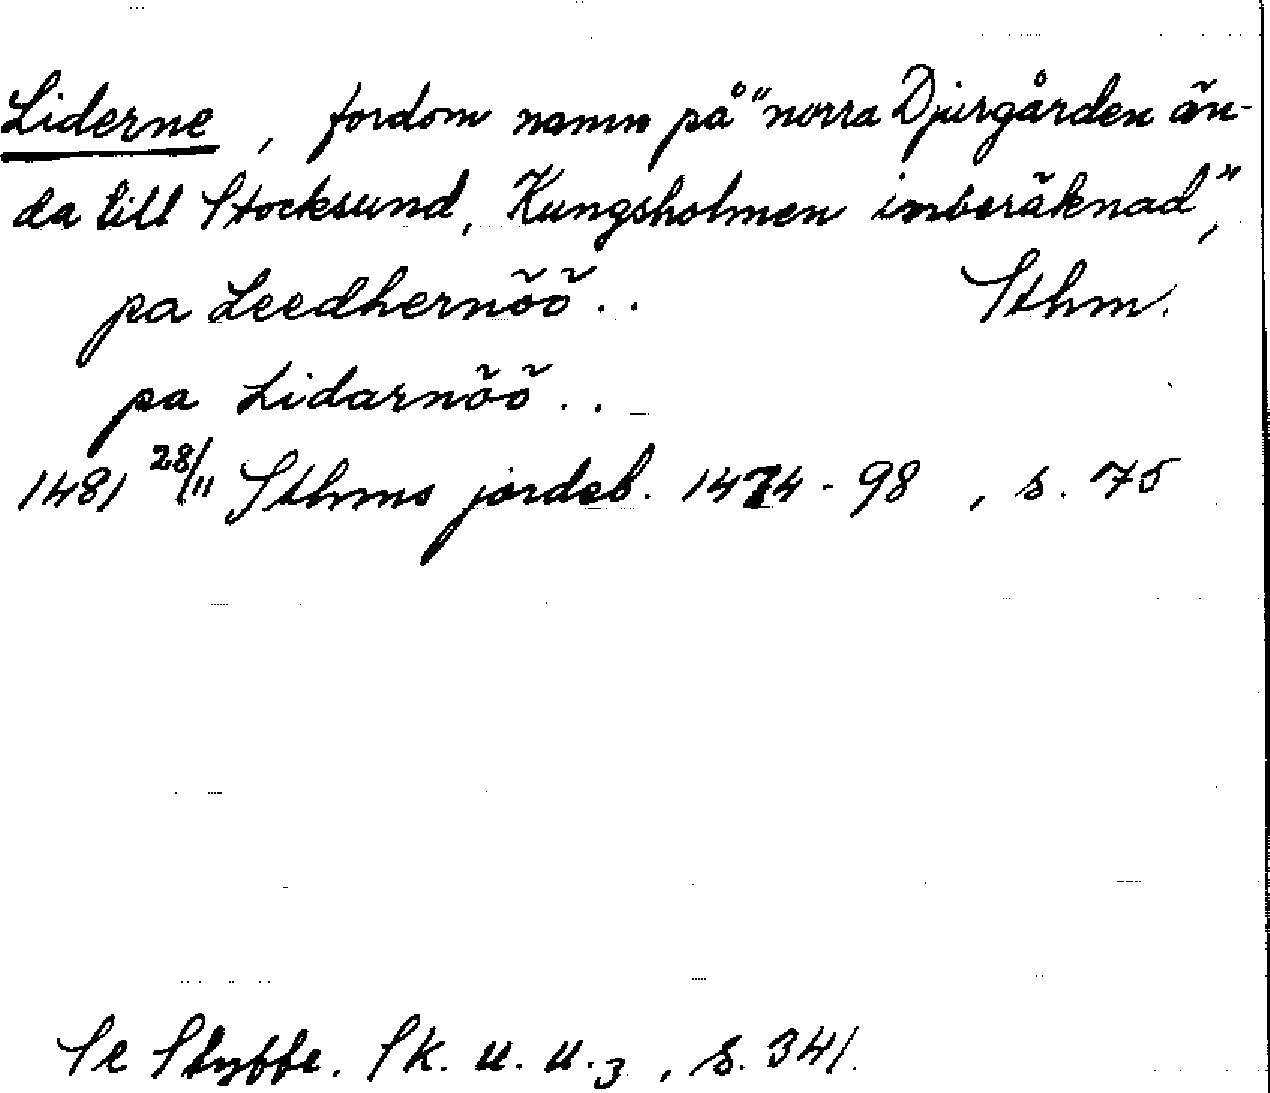 Liderne, fordom namn på "norra Djurgården än-
da till Stocksund, Kungsholmen inberäknad",
pa Leedhernöö.. Sthm.
pa Lidarnöö..
1481 28/11 Sthms jordeb. 1474-98, s. 75
Se Styffe. Sk. u. u. 3, s. 341.